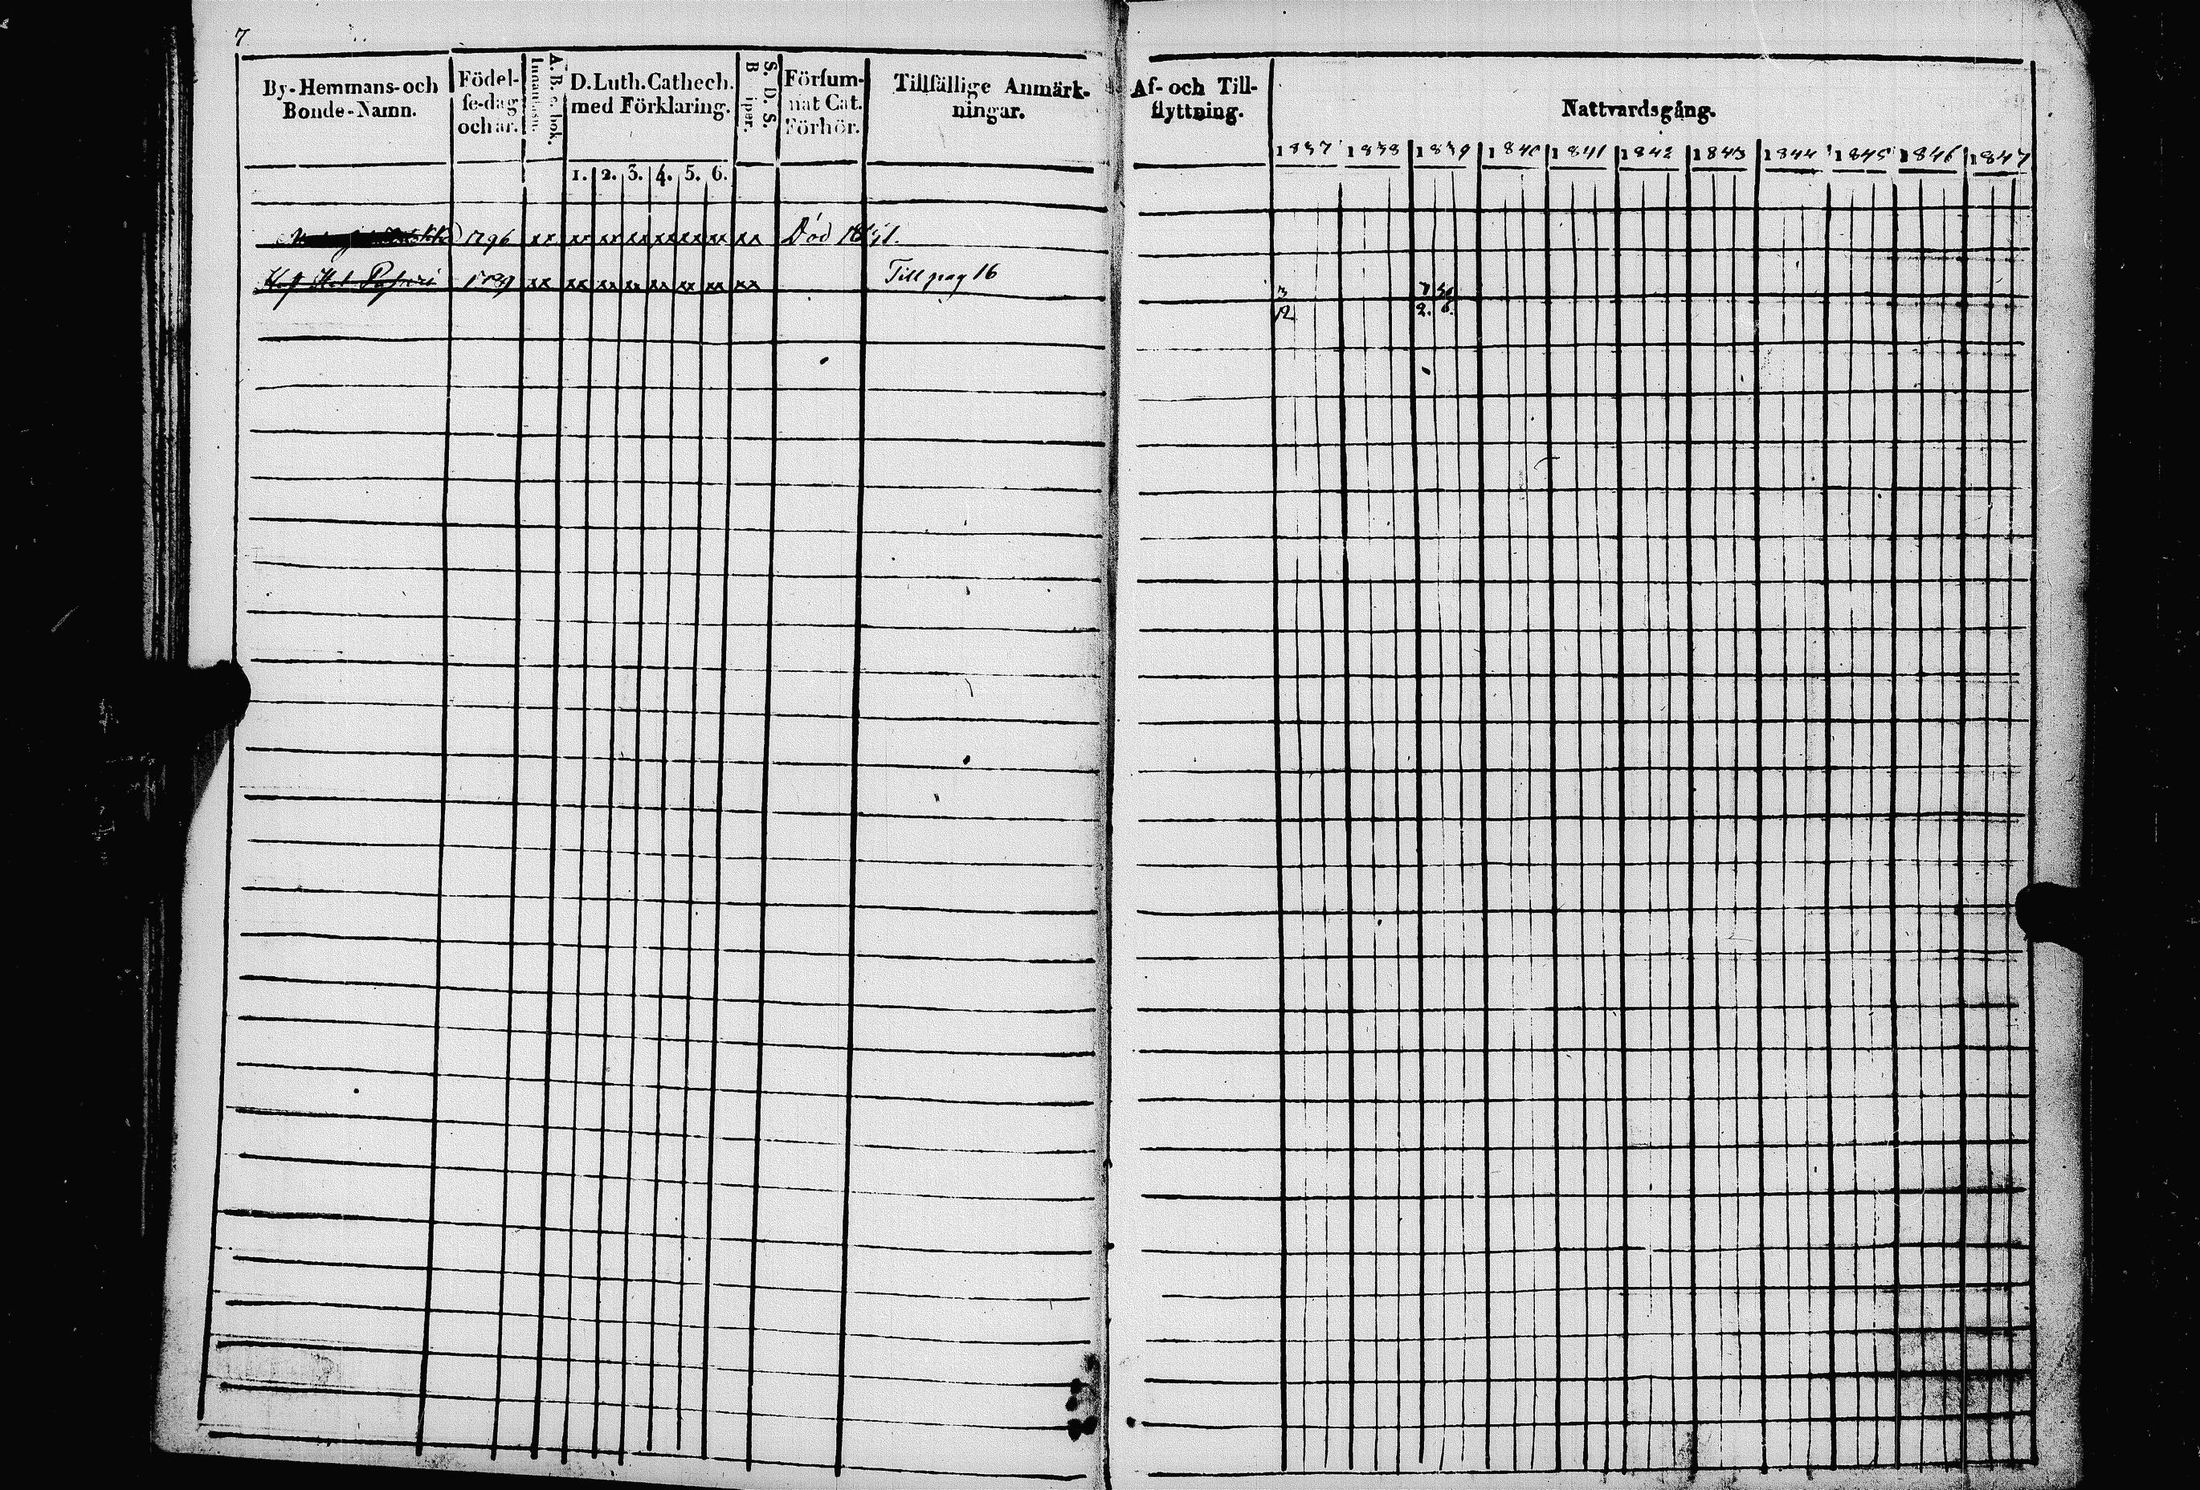 7
By-Hemmans-och
Bonde-Namn.
Födel-
se-dag
och år.
A. B. c. bok.
Innanläsn.
D. Luth. Cathech.
med Förklaring.
1. 2. 3. 4. 5. 6.
S. D. S.
Försum-
nat Cat.
Förhör.
Tillfällige Anmärk-
ningar.
Af- och Till-
flyttning.
Nattvardsgång.
1837 1838 1839 1840 1841 1842 1843 1844 1845 1846 1847
1796 xx xx xx xx xx xx xx xx Död
xx xx xx xx xx xx xx xx Till pag 16
3 7
12 2. 6.